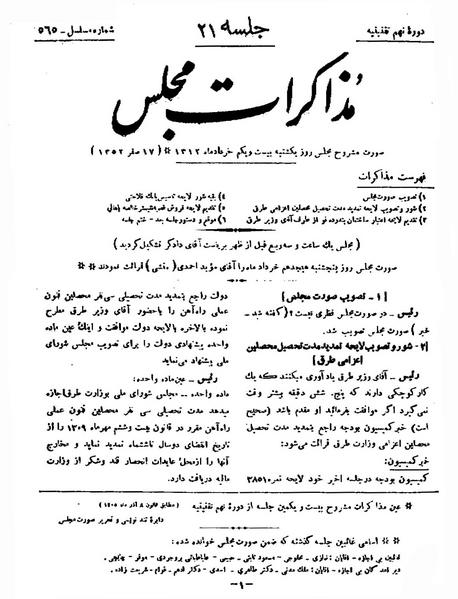 دورهٔ نهم تقنینیه
جلسه ۲۱
شماره مسلسل - ۵۶۵
مذاکرات مجلس
صورت مشروح مجلس روز یکشنبه بیست و یکم خردادماه ۱۳۱۲ * (۱۷ صفر ۱۳۵۲)
فهرست مذاکرات
۱) تصویب صورت مجلس
۲) شور و تصویب لایحه تمدید مدت تحصیل محصلین اعزامی طرق
۳) تقدیم لایحه اعتبار ساختمان بندر از طرف آقای وزیر طرق
۴) بقیه شور لایحه تاسیس بانک فلاحتی
۵) تقدیم لایحه فروش خالصه اهالی
۶) موقع و دستور جلسه بعد - ختم جلسه
(مجلس یک ساعت و سه ربع قبل از ظهر بریاست آقای دادگر تشکیل گردید)
صورت مجلس روز پنجشنبه هیجدهم خرداد ماه را آقای مؤید احمدی (منشی) قرائت نمودند
[۱ - تصویب صورت مجلس]
رئیس - در صورت مجلس نظری نیست؟ (گفته شد -
خیر) صورت مجلس تصویب شد.
[۲- شور و تصویب لایحه تمدید مدت تحصیل محصلین
اعزامی طرق]
رئیس - آقای وزیر طرق یادآوری میکنند که یک
کار کوچکی دارند که پنج، شش دقیقه بیشتر وقت
نمی‌گیرد اگر موافقت بفرمائید او مقدم باشد (صحیح
است) خبر کمیسیون بودجه راجع بتمدید مدت تحصیل
محصلین اعزامی وزارت طرق قرائت می‌شود:
خبر کمیسیون:
کمیسیون بودجه در جلسه اخیر خود لایحه نمره ۳۸۵۱
دولت راجع بتمدید مدت تحصیلی سی نفر محصلین فنون
عملی راه‌آهن را با حضور آقای وزیر طرق مطرح
نموده بالاخره با لایحه دولت موافقت و اینک عین ماده
واحده پیشنهادی دولت را برای تصویب مجلس شورای
ملی پیشنهاد می‌نماید
رئیس - عین ماده واحده:
ماده واحده - مجلس شورای ملی بوزارت طرق اجازه
میدهد مدت تحصیلی سی نفر محصلین فنون عملی
راه‌آهن مقرر در قانون بیست و ششم مهرماه ۱۳۰۹ را از
تاریخ انقضای دو سال تا ششماه تمدید نماید و مخارج
آنها را از محل عایدات انحصار قند و شکر از وزارت
مالیه دریافت دارد.
* عین مذاکرات مشروح بیست و یکمین جلسه از دوره نهم تقنینیه (مطابق قانون ۸ آذر ماه ۱۳۰۵)
دایرهٔ تند نویسی و تحریر صورت مجلس
* اسامی غائبین جلسه گذشته که ضمن صورت مجلس خوانده شده:
غائبین بی اجازه - آقایان: نمازی - مخلوجی - مسعود ثابتی - حبیبی - طباطبائی بروجردی - موقر - بیهبهی -
دیر آمدگان بی اجازه - آقایان: ملک مدنی - دکتر طاهری - اسدی - دکتر ادهم - قوام - شریعت زاده.
- ۱ -